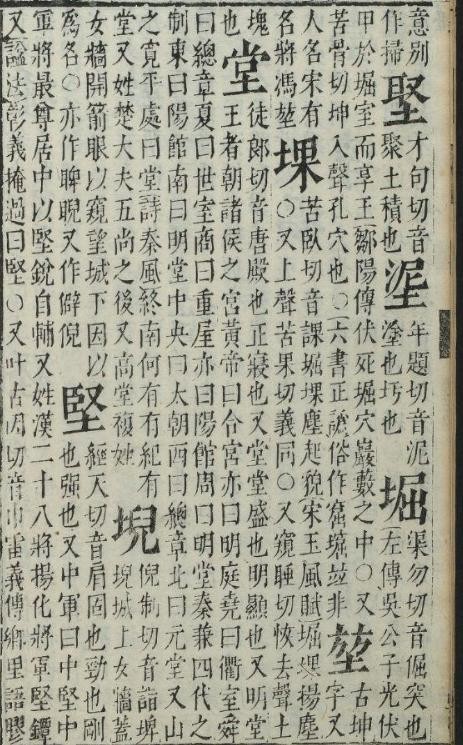 意別
作掃 堅 才句切音 聚土積也 埿 年題切音泥 塗也圬也 堀 渠勿切音倔突也 左傳吳公子光伏
甲於堀室而享王鄒陽傳伏死堀穴巖藪之中〇又
苦骨切坤入聲孔穴也〇六書正譌俗作窟𡒃並非 堃 古坤字又
人名宋有
名將馮堃 堁 苦臥切音課堀堁塵起貌宋玉風賦堀堁揚塵
〇又上聲苦果切義同〇又窺睡切恢去聲土
塊
也 堂 徒郎切音唐殿也正寢也又堂堂盛也明顯也又明堂
王者朝諸侯之宮黃帝曰合宮亦曰明庭堯曰衢室舜
曰總章夏曰世室商曰重屋亦曰陽館周曰明堂秦兼四代之
制東曰陽館南曰明堂中央曰太朝西曰總章北曰元堂又山
之寬平處曰堂詩秦風終南何有有紀有
堂又姓楚大夫五尚之後又高堂複姓 堄 倪制切音詣埤
堄城上女牆蓋
女牆開箭眼以窺望城下因以
爲名〇亦作睥睨又作僻倪 堅 經天切音肩固也勁也剛
也强也又中軍曰中堅中
軍將最尊居中以堅銳自輔又姓漢二十八將揚化將軍堅鐔
又諡法彰義掩過曰堅〇又叶古因切音巾雷義傳鄉里語膠